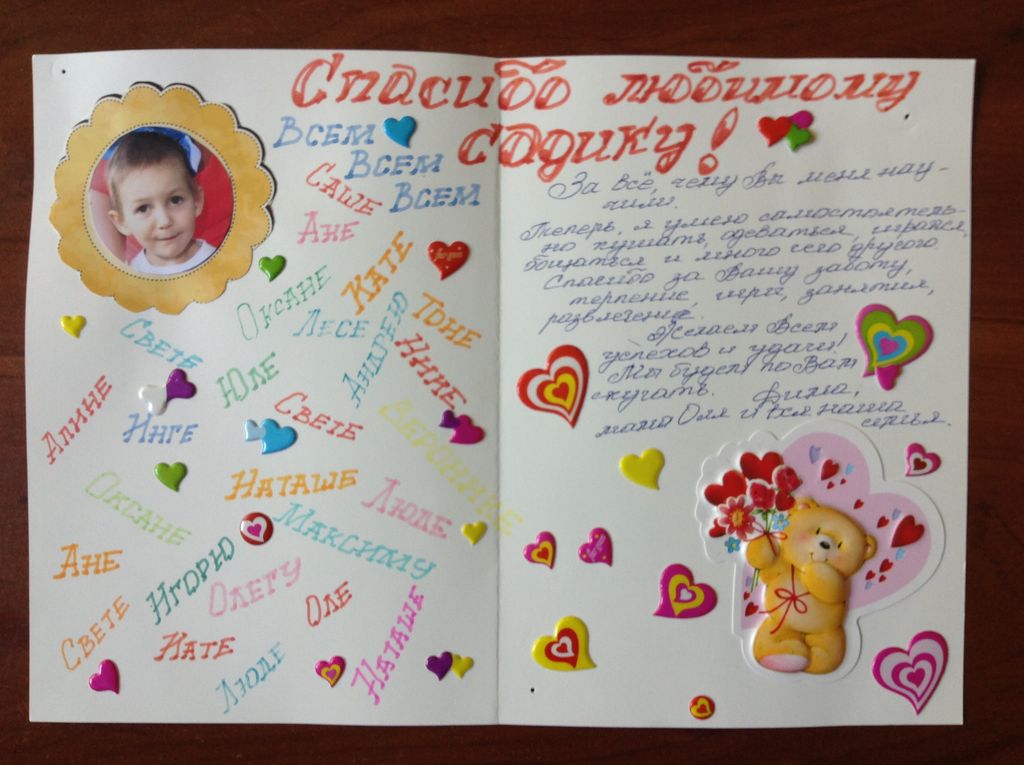 Спасибо любимому
садику!
Всем
Всем
Всем
Саше
Ане
Кате
Оксане
Лесе
Андрею
Тоне
Инне
Свете
Юле
Свете
Алине
Инге
Веронике
Оксане
Наташе
Люде
Максиму
Ане
Игорю
Олегу
Оле
Свете
Кате
Люде
Наташе
За всё, чему Вы меня нау-
чили.
Теперь, я умею самостоятель-
но кушать, одеваться, играться,
общаться и много чего другого
Спасибо за Вашу заботу,
терпение, игры, занятия,
развлечение.
Желаем Всем
успехов и удачи!
Мы будем по Вам
скучать. Фима,
мама Оля и вся наша
семья.